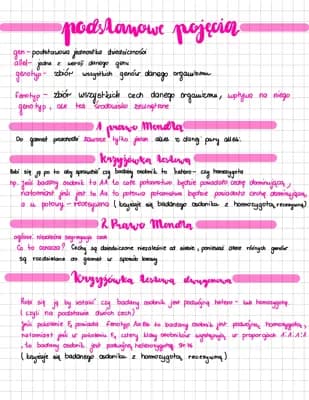 podstawowe pojęcia
gen - podstawowa jednostka dziedziczności
allel - jedna z wersji danego genu
genotyp - zbiór wszystkich genów danego organizmu
fenotyp - zbiór wszystkich cech danego organizmu, wpływa na niego
genotyp, ale też środowisko zewnętrzne
1 prawo Mendla
Do gamet przechodzi zawsze tylko jeden allel z danej pary alleli.
Krzyżówka testowa
Robi się ją po to aby sprawdzić czy badany osobnik to hetero- czy homozygota
np. Jeśli badany osobnik to AA to całe potomstwo będzie posiadało cechę dominującą,
natomiast jeśli jest to Aa to połowa potomstwa będzie posiadała cechę dominującą,
a u połowy - recesywna (krzyżuje się badanego osobnika z homozygotą recesywną)
2 Prawo Mendla
niezależna segregacja cech
Co to oznacza? Cechy są dziedziczone niezależnie od siebie, ponieważ allele różnych genów
są rozdzielane do gamet w sposób losowy
Krzyżówka testowa dwugenowa
Robi się ją by ustalić czy badany osobnik jest podwójną hetero- lub homozygotą.
(czyli na podstawie dwóch cech)
Jeśli pokolenie F₁ posiada fenotyp AaBb to badany osobnik jest podwójną homozygotą,
natomiast jeśli w pokoleniu F₁ cztery klasy osobników występują w proporcjach 1:1:1:1
, to badany osobnik jest podwójną heterozygotą.
(krzyżuje się badanego osobnika z homozygotą recesywną)